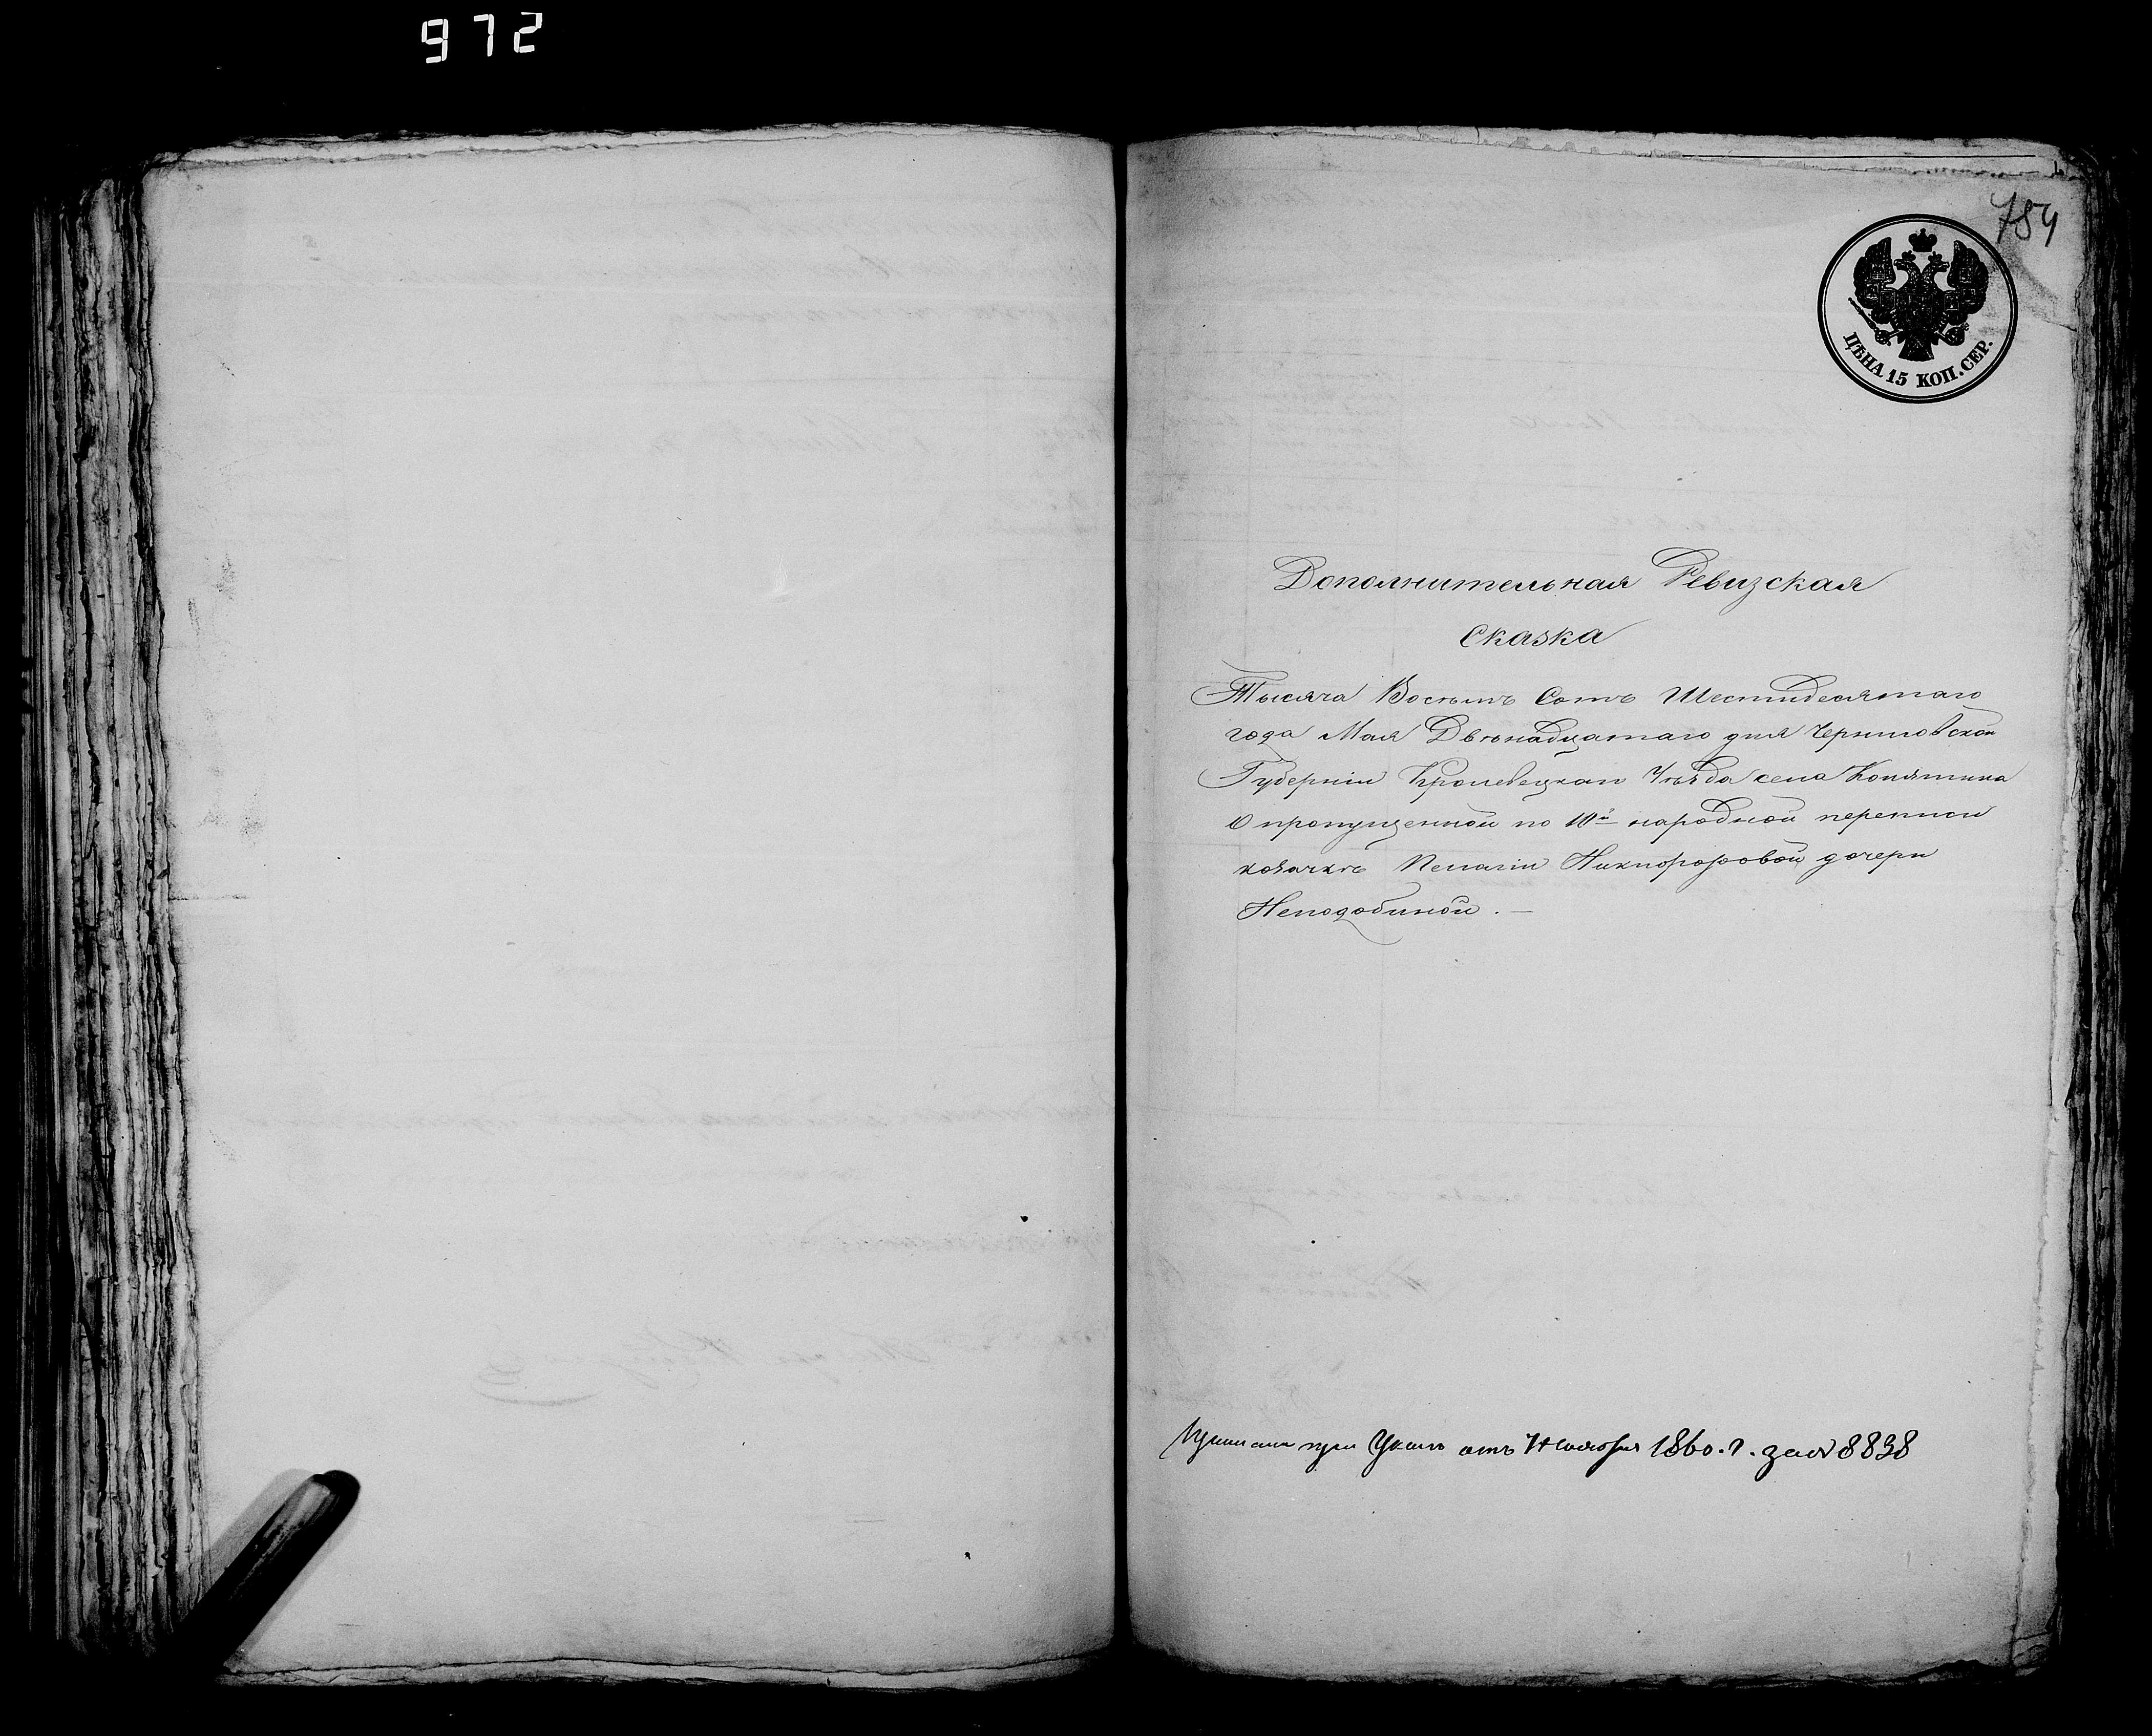 972
784
ЦѢНА 15 КОП. СЕР.
Дополнительная Ревизская
Сказка
Тысяча Восемь Сотъ Шестидесятаго
года Мая Двѣнадцатаго дня Черниговской
Губерніи Кролевецкаго Уѣзда села Конятина
О пропущенной по 10й народной переписи
козачкѣ Пелагіи Никифоровой дочери
Неподобиной. —
при Указѣ отъ 7 Ноября 1860. г. за № 8838